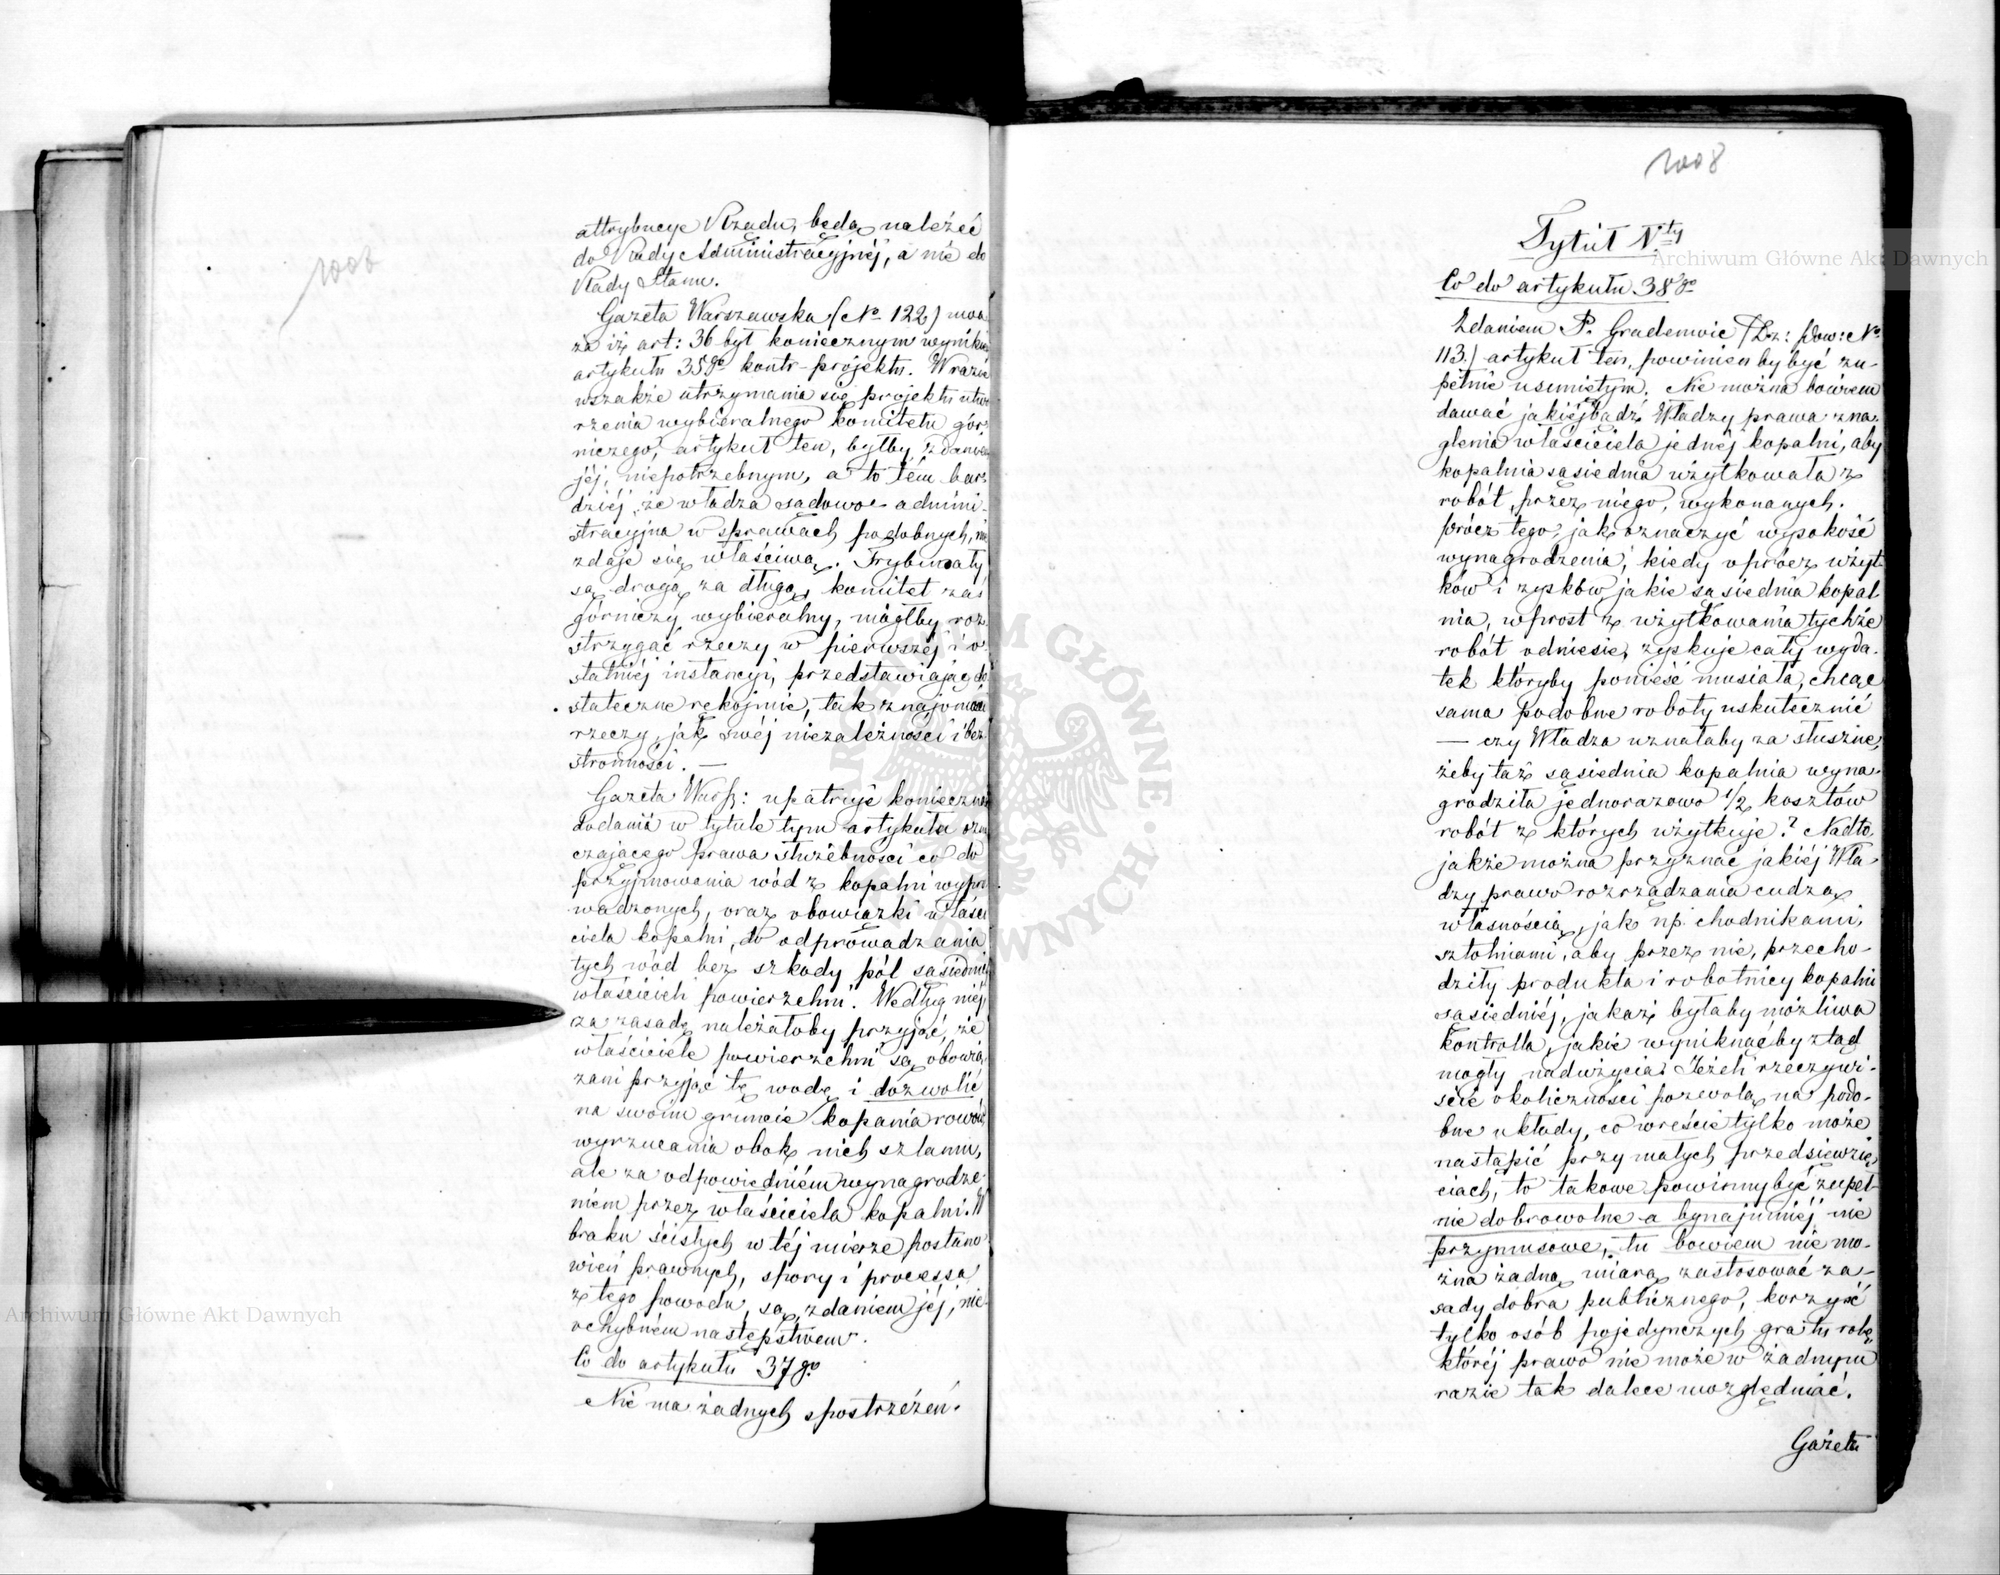 1006
attrybucye Rządu, będą należeć
do Rady Administracyjnéj, a nie do
Rady Stanu.
Gazeta Warszawska (No 122) uwa-
ża iż art: 36 był koniecznym wynikiem
artykułu 35go kontr-projektu. W razie
wszakże utrzymania się projektu utwo-
rzenia wybieralnego komitetu gór-
niczego, artykuł ten, byłby, zdaniem
jéj, niepotrzebnym, a to tém bar-
dziéj, że władza sądowo admini-
stracyjna w sprawach podobnych, nie
zdaje się właściwą. Trybunały
są drogą za długą, komitet zaś
górniczy wybieralny, mógłby roz-
strzygać rzeczy w pierwszéj i o-
statniéj instancyi, przedstawiając do-
stateczne rękojmie, tak znajomości
rzeczy, jak swéj niezależności i bez-
stronności. —
Gazeta Warsz: upatruje konieczność
dodania w tytule tym artykułu ozna-
czającego prawa służebności co do
przyjmowania wód z kopalni wypro-
wadzonych, oraz obowiązki właści-
ciela kopalni, do odprowadzania
tych wód bez szkody pól sąsiednich
właścicieli powierzchni. Według niéj
za zasadę należałoby przyjąć, że
właściciele powierzchni są obowią-
zani przyjąć tę wodę i dozwolić
na swoim gruncie kopania rowów,
wyrzucania obok nich szlamu,
ale za odpowiedniém wynagrodze-
niem przez właściciela kopalni. W
braku ścisłych w téj mierze postano-
wień prawnych, spory i processa
z tego powodu, są, zdaniem jéj, nie-
ochybném następstwem.
Co do artykułu 37go
Nie ma żadnych spostrzeżeń.
1008
Tytuł Vty
Co do artykułu 38go
Zdaniem P. Gradenwic (Dz: Pow: No
113.) artykuł ten, powinien by być zu-
pełnie usuniętym. Nie można bowiem
dawać jakiéjbądź Władzy prawa zna-
glenia właściciela jednéj kopalni, aby
kopalnia sąsiednia użytkowała z
robót, przez niego, wykonanych.
Prócz tego, jak oznaczyć wysokość
wynagrodzenia, kiedy oprócz użyt-
ków i zysków jakie sąsiednia kopal-
nia, wprost z użytkowania tychże
robót odniesie, zyskuje cały wyda-
tek któryby ponieść musiała, chcąc
sama podobne roboty uskutecznić
— czy Władza uznałaby za słuszne,
żeby taż sąsiednia kopalnia wyna-
grodziła jednorazowo 1/2 kosztów
robót z których użytkuje? Nadto,
jakże można przyznać jakiéj Wła-
dzy prawo rozrządzania cudzą
własnością, jak np. chodnikami,
sztolniami, aby przez nie, przecho-
dziły produkta i robotnicy kopalni
sąsiedniéj, jakaż byłaby możliwa
kontrolla, jakie wyniknąćby ztąd
mogły nadużycia? Jeżeli rzeczywi-
ście okoliczności pozwolą na podo-
bne układy, co wreście tylko może
nastąpić przy małych przedsięwzię-
ciach, to takowe powinny być zupeł-
nie dobrowolne a bynajmniéj nie
przymusowe, tu bowiem nie mo-
żna żadną miarą zastosować za-
sady dobra publicznego, korzyść
tylko osób pojedynczych gra tu rolę,
któréj prawo nie może w żadnym
razie tak dalece uwzględniać.
Gazeta
Archiwum Główne Akt Dawnych
Archiwum Główne Akt Dawnych